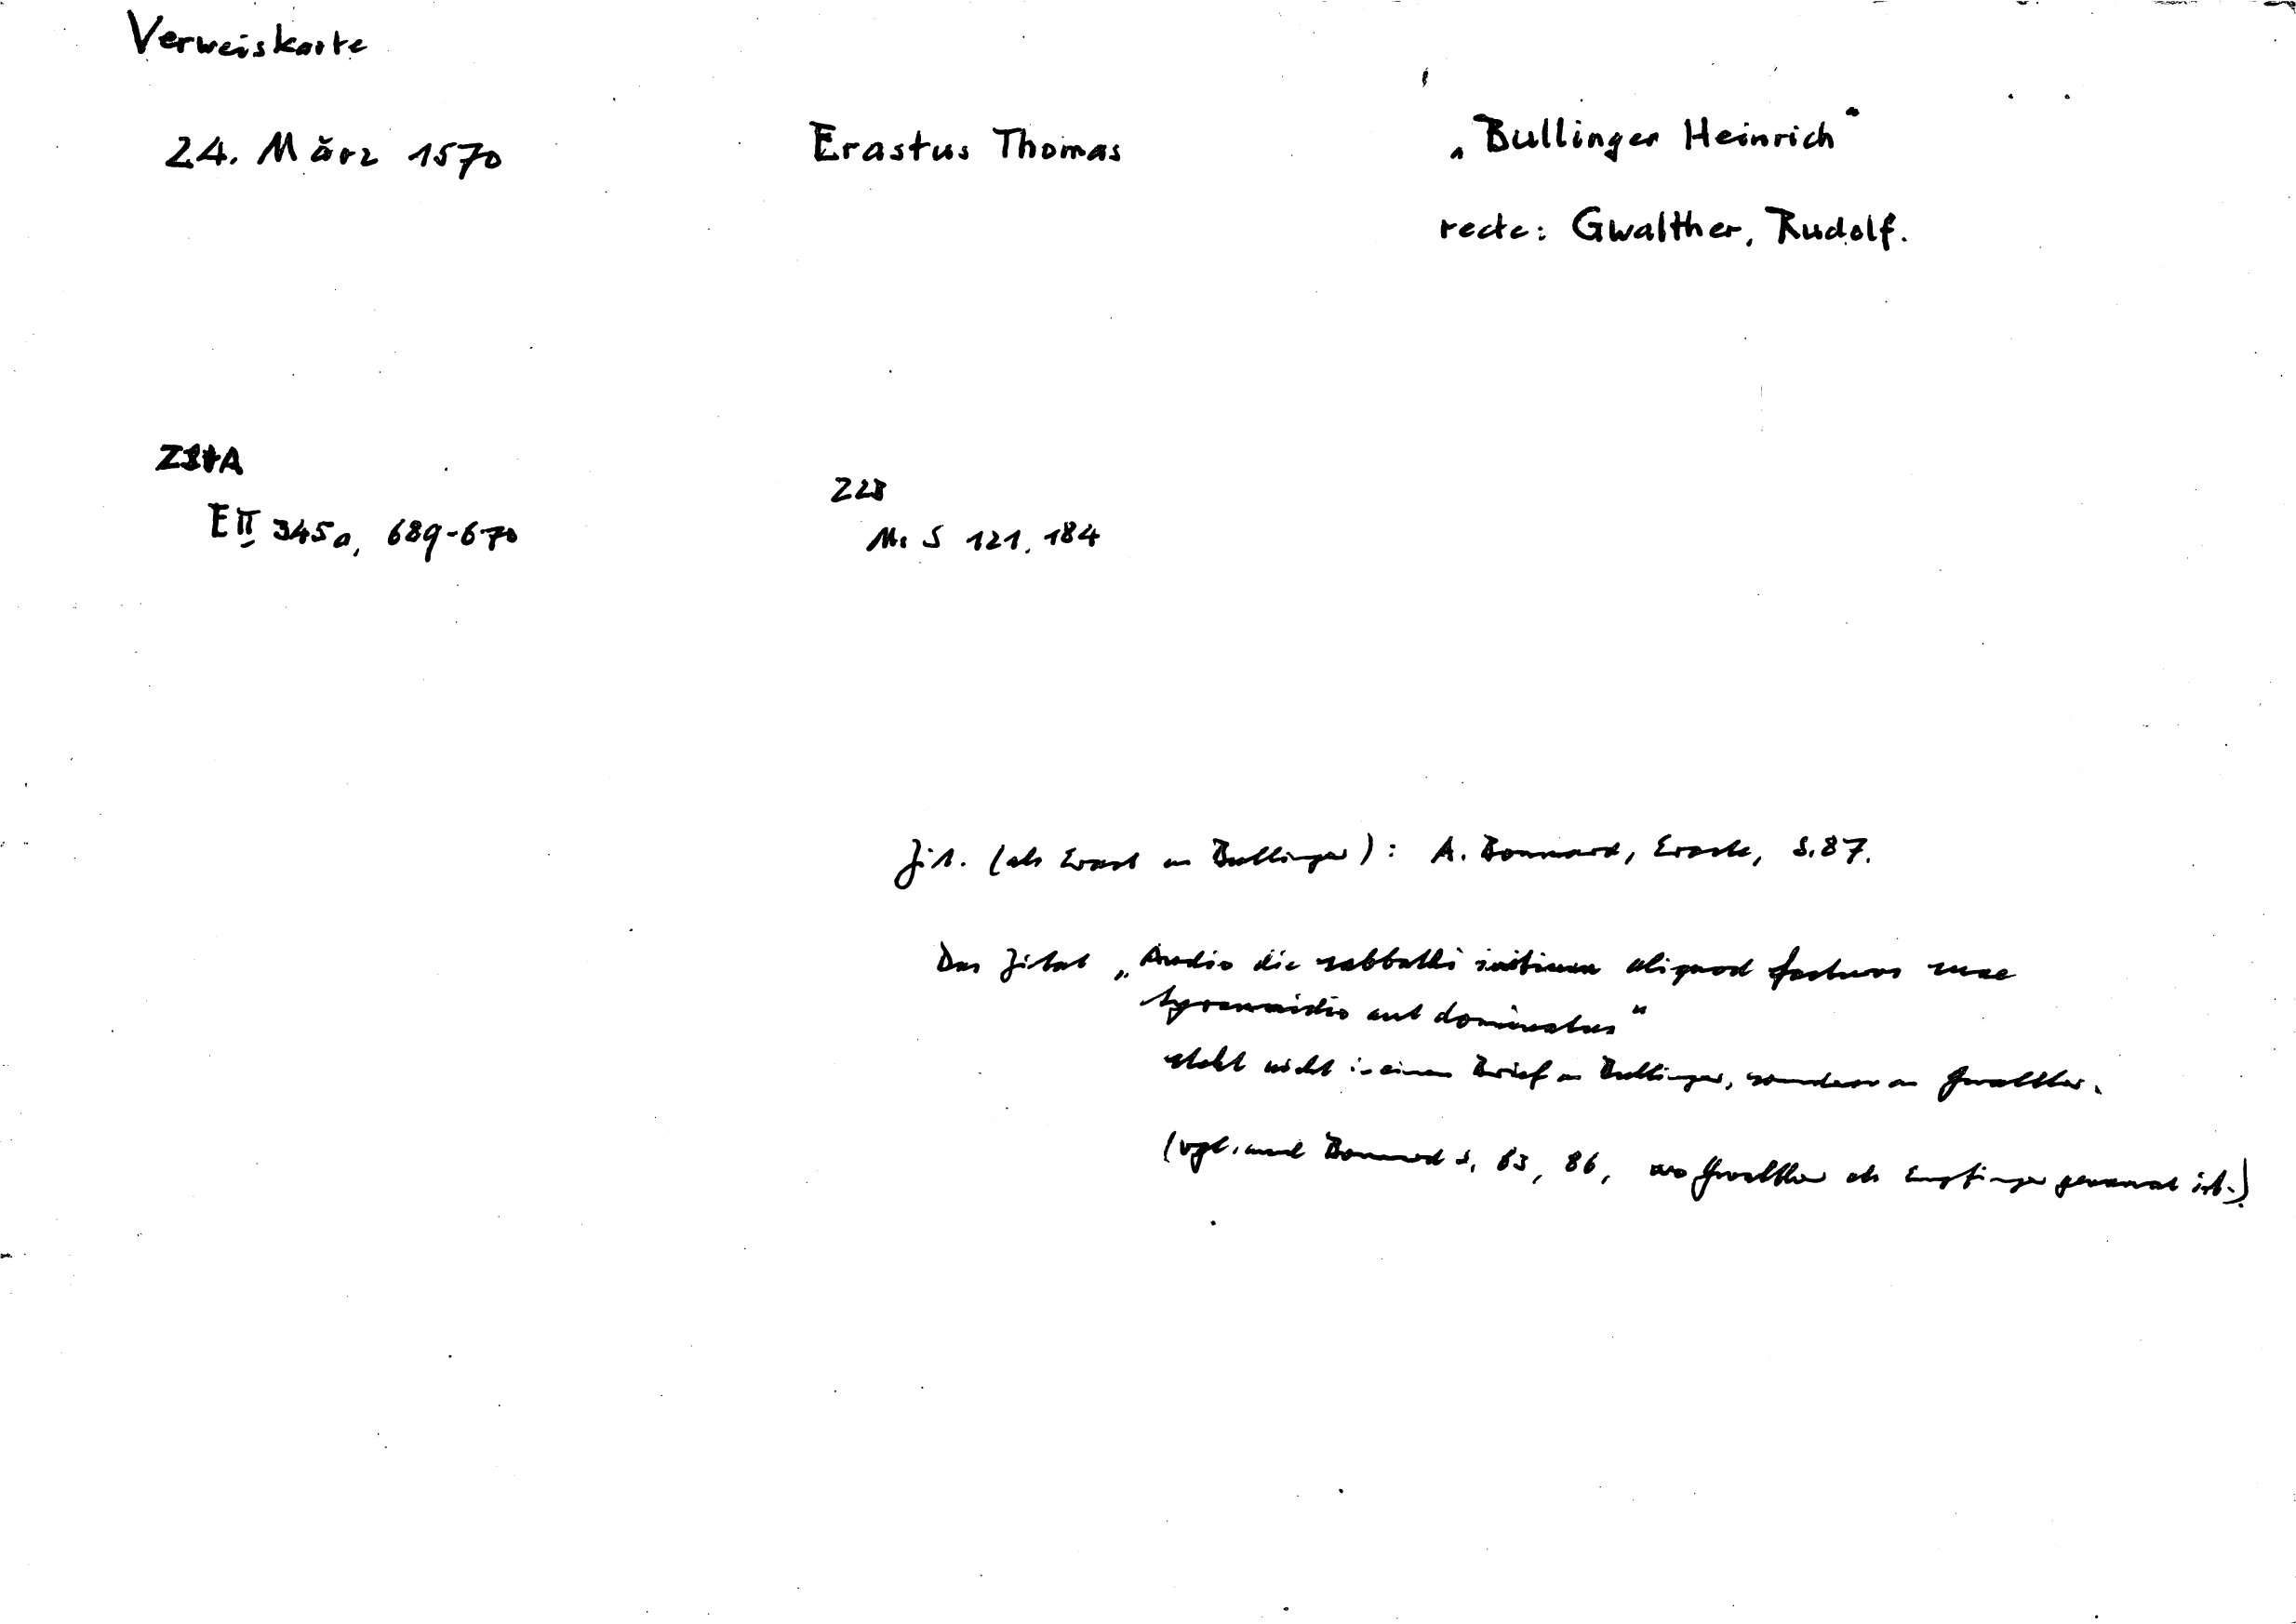 Verweiskarte
24. März 1570
Erastus Thomas
„Bullinger Heinrich"
recte: Gwalther, Rudolf.
ZStA
E II 345a, 689-670
ZZB
Ms S 121, 184
Zit. (als Erast an Bullinger): A. Bonnard, Eraste, S. 87.
Das Zitat „Audio die sabbathi initium aliquod facturos suae
tyrannidis aut dominatus"
steht nicht in einem Brief an Bullinger, sondern an Gwalther.
(vgl. auch Bonnard S. 63, 86, wo Gwalther als Empfänger genannt ist.)